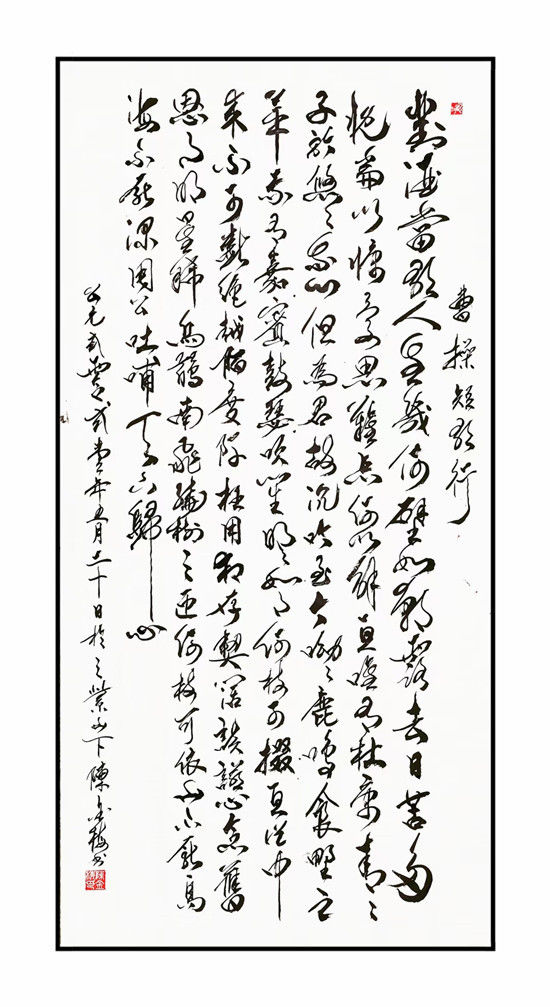 曹操短歌行
對酒當歌人生幾何譬如朝露去日苦多
慨當以慷憂思難忘何以解憂唯有杜康青々
子衿悠々我心但為君故沉吟至今呦々鹿鳴食野之
苹我有嘉賓鼓瑟吹笙明々如月何時可掇憂從中
來不可斷絕越陌度阡枉用相存契闊談讌心念舊
恩月明星稀烏鵲南飛繞樹三匝何枝可依山不厭高
海不厭深周公吐哺天下歸心
公元貳零貳壹年五月二十日於紫山下陳金梅书